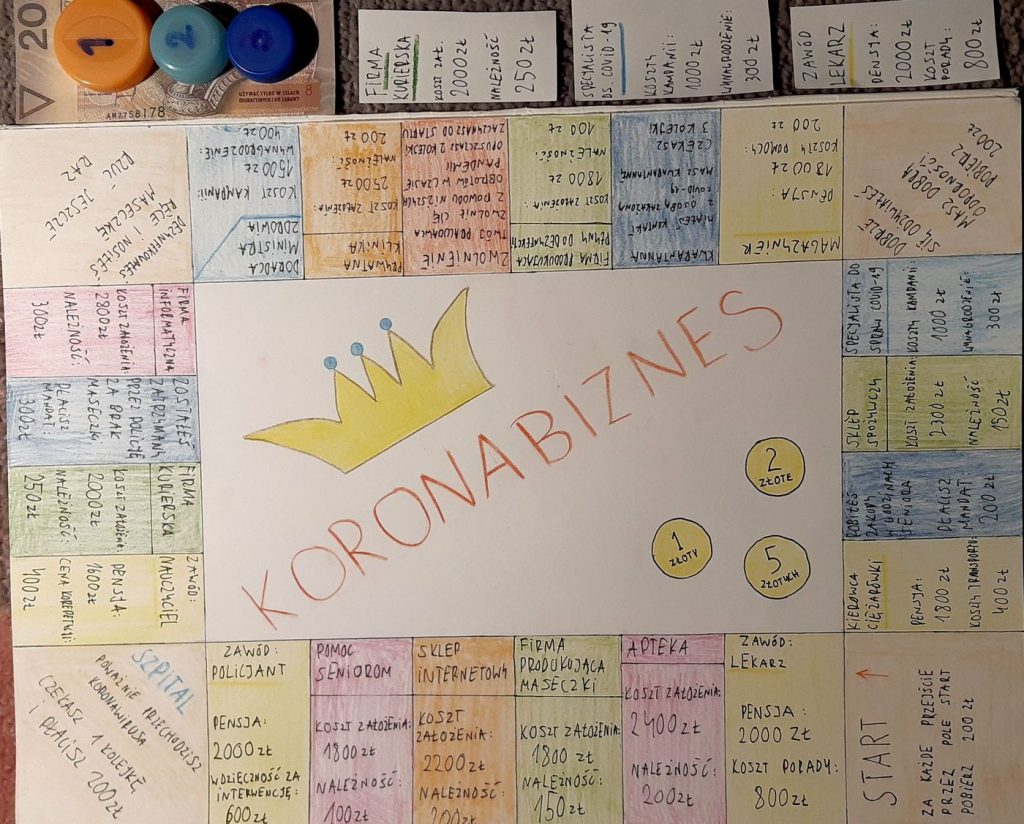 20
UŻYWAĆ TYLKO W CELACH
EDUKACYJNYCH I DO ZABAWY
AM2758178
1
2
3
FIRMA
KURIERSKA
KOSZT ZAŁ.
2000 zł
NALEŻNOŚĆ
250 zł
SPECJALISTA
DS. COVID-19
KOSZTY
KAMPANII:
1000 zł
WYNAGRODZENIE:
300 zł
ZAWÓD
LEKARZ
PENSJA:
2000 zł
KOSZT
PORADY:
800 zł
DEZYNFEKOWAŁEŚ
RĘCE I NOSIŁEŚ
MASECZKĘ
RZUĆ JESZCZE
RAZ
DORADCA
MINISTRA
ZDROWIA
KOSZT KAMPANII:
1500 zł
WYNAGRODZENIE:
400 zł
PRYWATNA
KLINIKA
KOSZT ZAŁOŻENIA:
2500 zł
NALEŻNOŚĆ:
200 zł
ZWOLNIENIE
TWÓJ PRACODAWCA
ZWOLNIŁ CIĘ
Z POWODU NIŻSZYCH
OBROTÓW W CZASIE
PANDEMII
OPUSZCZASZ 2 KOLEJKI
ZACZYNASZ OD STARTU
FIRMA PRODUKUJĄCA
PŁYNY DO DEZYNFEKCJI
KOSZT ZAŁOŻENIA:
1800 zł
NALEŻNOŚĆ:
100 zł
KWARANTANNA
MIAŁEŚ KONTAKT
Z OSOBĄ ZAKAŻONĄ
COVID-19
MASZ KWARANTANNĘ
CZEKASZ
3 KOLEJKI
MAGAZYNIER
PENSJA:
1800 zł
KOSZTY POMOCY:
200 zł
DOBRZE
SIĘ ODŻYWIAŁEŚ
MASZ DOBRĄ
ODPORNOŚĆ!
POBIERZ
200 zł
FIRMA
INFORMATYCZNA
KOSZT ZAŁOŻENIA:
2800 zł
NALEŻNOŚĆ:
300 zł
ZOSTAŁEŚ
ZATRZYMANY
PRZEZ POLICJĘ
ZA BRAK
MASECZKI
PŁACISZ
MANDAT:
300 zł
FIRMA
KURIERSKA
KOSZT ZAŁOŻENIA:
2000 zł
NALEŻNOŚĆ:
250 zł
ZAWÓD:
NAUCZYCIEL
PENSJA:
1600 zł
CENA KOREPETYCJI:
400 zł
KORONABIZNES
2
ZŁOTE
1
ZŁOTY
5
ZŁOTYCH
SPECJALISTA DO
SPRAW COVID-19
KOSZTY KAMPANII:
1000 zł
WYNAGRODZENIE:
300 zł
SKLEP
SPOŻYWCZY
KOSZT ZAŁOŻENIA:
2300 zł
NALEŻNOŚĆ
190 zł
ROBIŁEŚ
ZAKUPY
W GODZINACH
SENIORA
PŁACISZ
MANDAT
200 zł
KIEROWCA
CIĘŻARÓWKI
PENSJA:
1800 zł
KOSZTY TRANSPORTU:
400 zł
SZPITAL
POWAŻNIE PRZECHODZISZ
KORONAWIRUSA
CZEKASZ 1 KOLEJKĘ
I PŁACISZ 200 zł
ZAWÓD:
POLICJANT
PENSJA:
2000 zł
WDZIĘCZNOŚĆ ZA
INTERWENCJĘ:
600 zł
POMOC
SENIOROM
KOSZT ZAŁOŻENIA:
1800 zł
NALEŻNOŚĆ:
100 zł
SKLEP
INTERNETOWY
KOSZT
ZAŁOŻENIA:
2200 zł
NALEŻNOŚĆ:
200 zł
FIRMA
PRODUKUJĄCA
MASECZKI
KOSZT ZAŁOŻENIA:
1800 zł
NALEŻNOŚĆ:
150 zł
APTEKA
KOSZT ZAŁOŻENIA:
2400 zł
NALEŻNOŚĆ:
200 zł
ZAWÓD:
LEKARZ
PENSJA:
2000 zł
KOSZT PORADY:
800 zł
START
ZA KAŻDE PRZEJŚCIE
PRZEZ POLE START
POBIERZ 200 zł